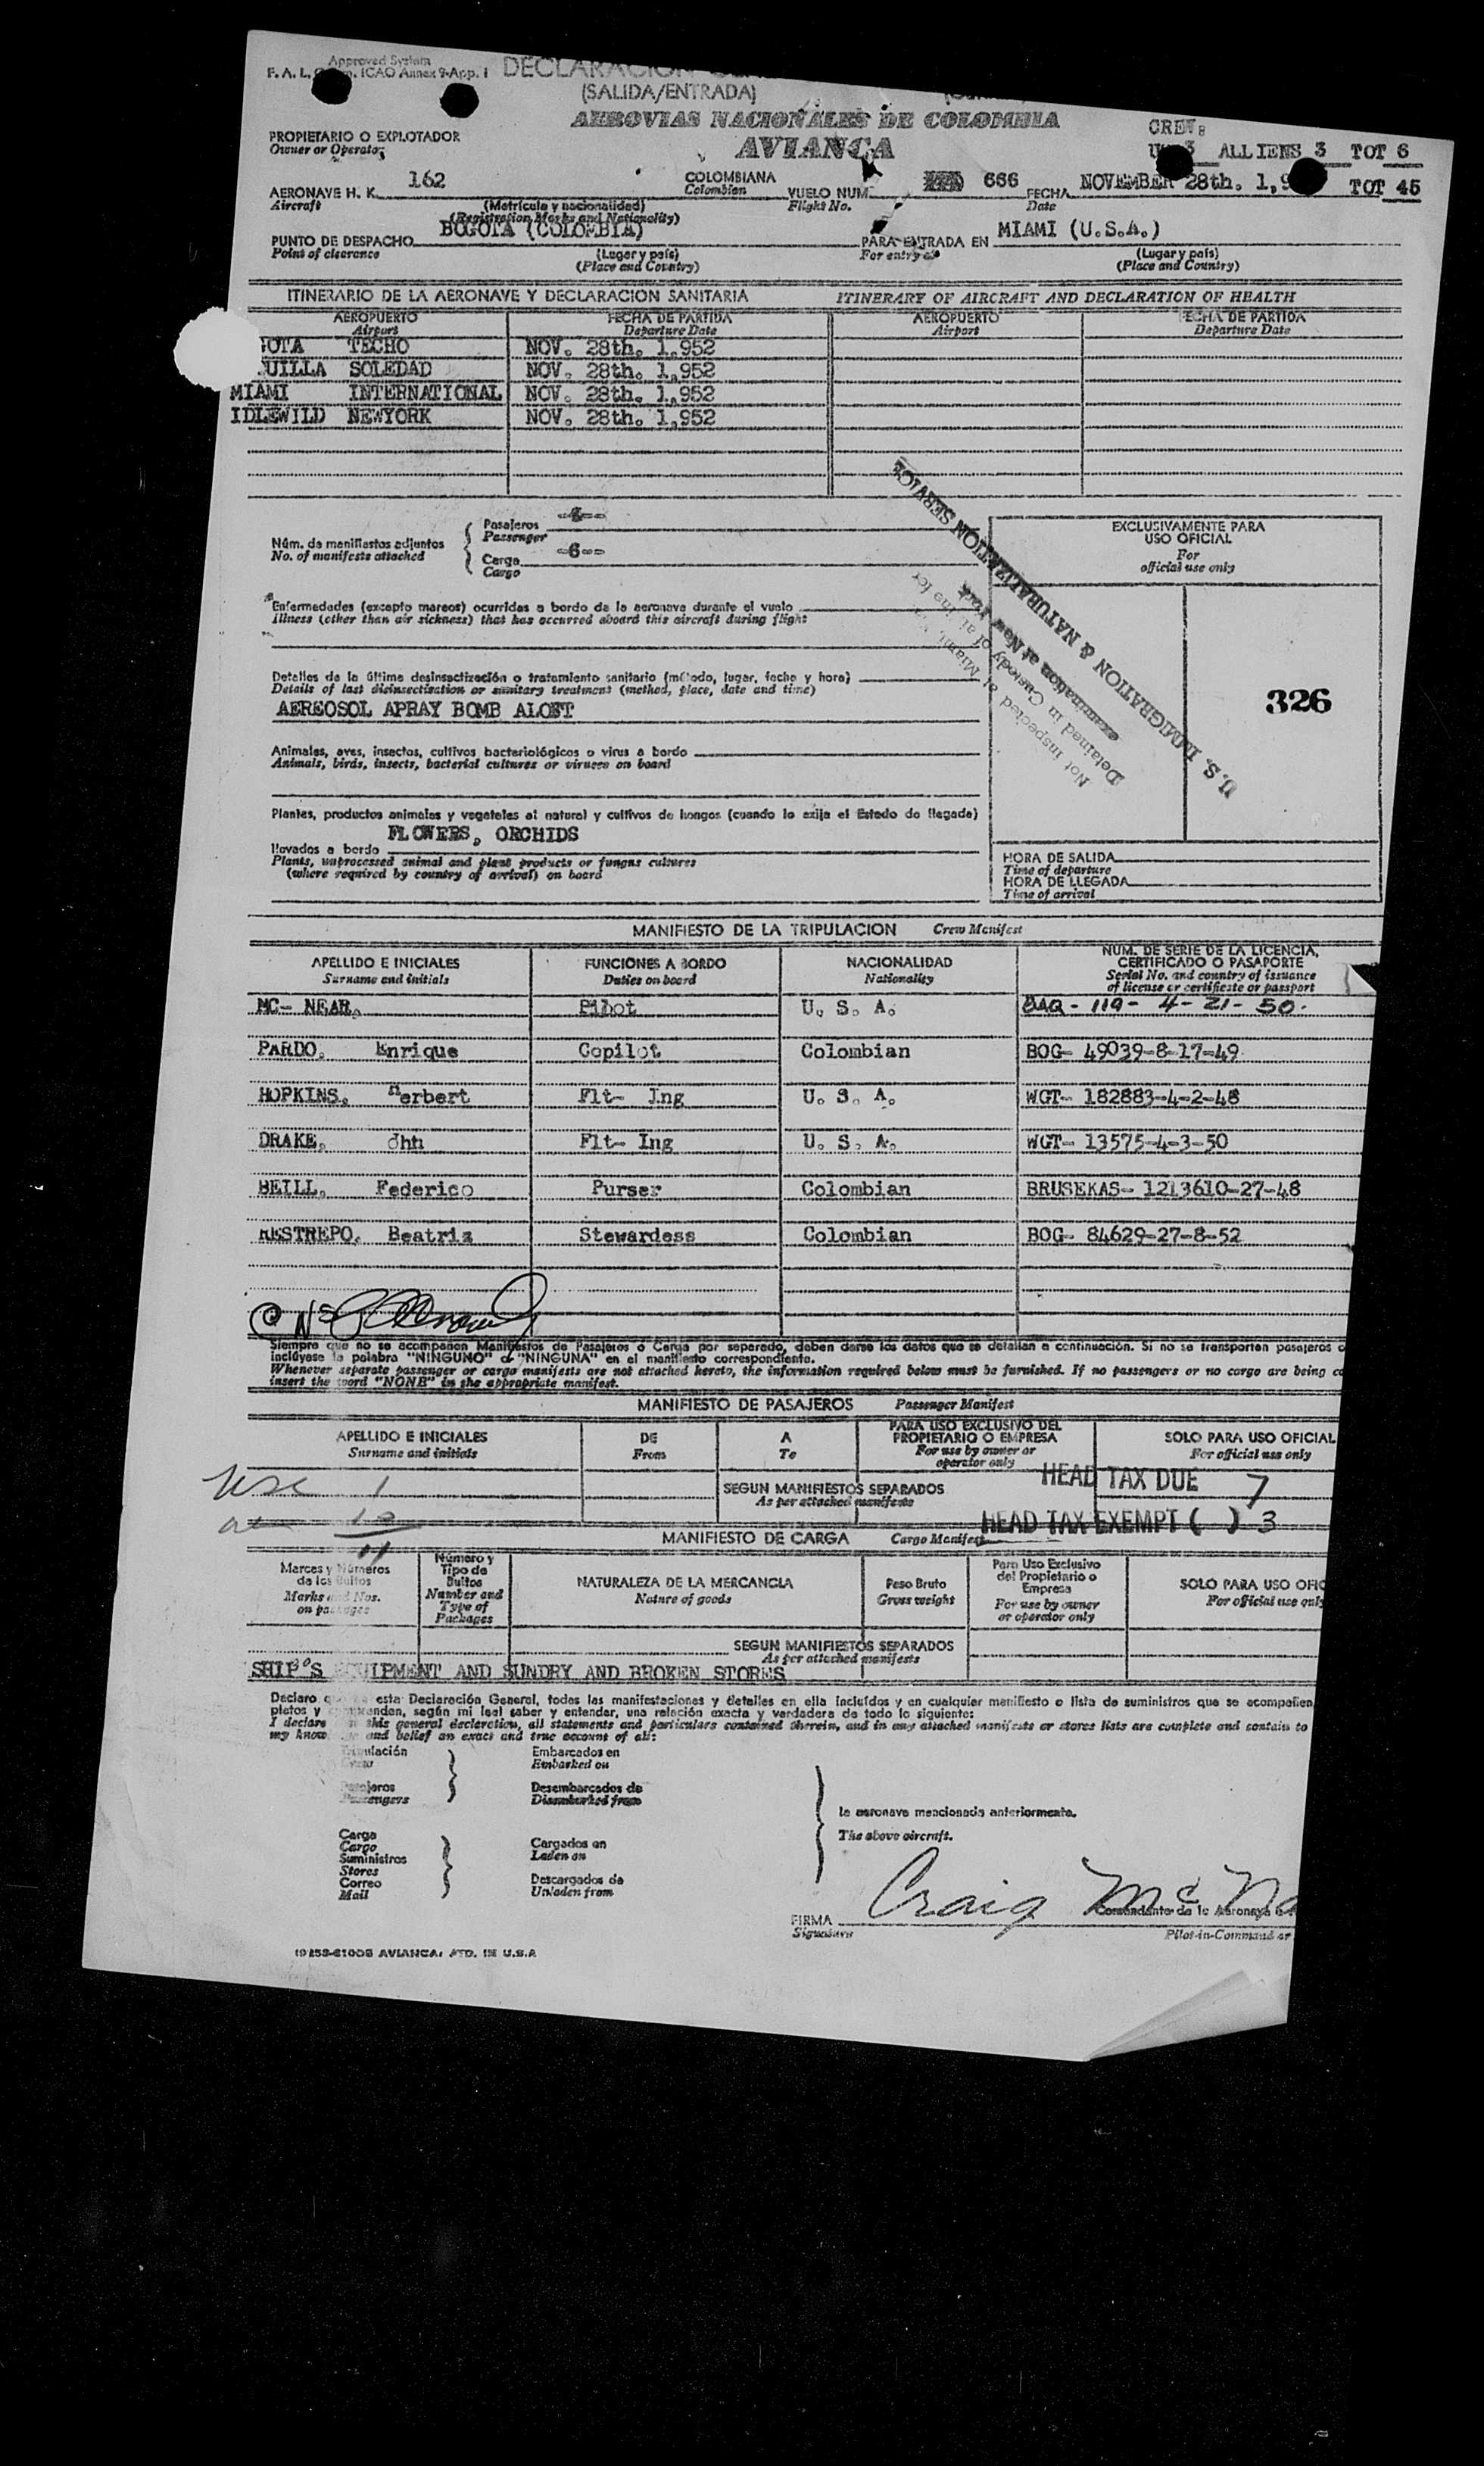 Approved System
F. A. L. ICAO Annex 9-App. I DECLARACION
(SALIDA/ENTRADA)
AEROVIAS NACIONALES DE COLOMBIA
AVIANCA
CREW:
3 ALLIENS 3 TOT 6
PROPIETARIO O EXPLOTADOR
Owner or Operator
AERONAVE H. K. 162 COLOMBIANA VUELO NUM. 666 FECHA NOVEMBER 28th. 1,9 TOT 45
Aircraft Colombian Flight No. Date
(Matrícula y nacionalidad)
(Registration Marks and Nationality)
PUNTO DE DESPACHO BOGOTA (COLOMBIA) PARA ENTRADA EN MIAMI (U.S.A.)
Point of clearance (Lugar y país) For entry at (Lugar y país)
(Place and Country) (Place and Country)
ITINERARIO DE LA AERONAVE Y DECLARACION SANITARIA ITINERARY OF AIRCRAFT AND DECLARATION OF HEALTH
AEROPUERTO FECHA DE PARTIDA AEROPUERTO FECHA DE PARTIDA
Airport Departure Date Airport Departure Date
OTA TECHO NOV. 28th. 1,952
UILLA SOLEDAD NOV. 28th. 1,952
MIAMI INTERNATIONAL NOV. 28th. 1,952
IDLEWILD NEWYORK NOV. 28th. 1,952
Núm. de manifiestos adjuntos
No. of manifests attached
Pasajeros
Passenger
Carga -6--
Cargo
EXCLUSIVAMENTE PARA
USO OFICIAL
For
official use only
U.S. IMMIGRATION & NATURALIZATION SERVICE
Not inspected at Miami,
Detained in Custody of
examination at New York
326
Enfermedades (excepto mareos) ocurridas a bordo de la aeronave durante el vuelo
Illness (other than air sickness) that has occurred aboard this aircraft during flight
Detalles de la última desinsectización o tratamiento sanitario (método, lugar, fecha y hora)
Details of last disinsectization or sanitary treatment (method, place, date and time)
AEREOSOL APRAY BOMB ALOFT
Animales, aves, insectos, cultivos bacteriológicos o virus a bordo
Animals, birds, insects, bacterial cultures or viruses on board
Plantas, productos animales y vegetales al natural y cultivos de hongos (cuando lo exija el Estado de llegada)
FLOWERS, ORCHIDS
llevados a bordo
Plants, unprocessed animal and plant products or fungus cultures
(where required by country of arrival) on board
HORA DE SALIDA
Time of departure
HORA DE LLEGADA
Time of arrival
MANIFIESTO DE LA TRIPULACION Crew Manifest
APELLIDO E INICIALES FUNCIONES A BORDO NACIONALIDAD NUM. DE SERIE DE LA LICENCIA,
CERTIFICADO O PASAPORTE
Surname and initials Duties on board Nationality Serial No. and country of issuance
of license or certificate or passport
MC- NEAR. Pilot U. S. A. BAQ - 119 - 4 - 21 - 50.
PARDO. Enrique Copilot Colombian BOG- 49039-8-17-49
HOPKINS. Herbert Flt- Ing U. S. A. WGT- 182883-4-2-48
DRAKE. Jhn Flt- Ing U. S. A. WGT- 13575-4-3-50
BEILL. Federico Purser Colombian BRUSEKAS- 1213610-27-48
RESTREPO. Beatriz Stewardess Colombian BOG- 84629-27-8-52
Siempre que no se acompañen Manifiestos de Pasajeros o Carga por separado, deben darse los datos que se detallan a continuación. Si no se transportan pasajeros o
inclúyase la palabra "NINGUNO" o "NINGUNA" en el manifiesto correspondiente.
Whenever separate passenger or cargo manifests are not attached hereto, the information required below must be furnished. If no passengers or no cargo are being ca
insert the word "NONE" in the appropriate manifest.
MANIFIESTO DE PASAJEROS Passenger Manifest
APELLIDO E INICIALES DE A PARA USO EXCLUSIVO DEL
PROPIETARIO O EMPRESA SOLO PARA USO OFICIAL
Surname and initials From To For use by owner or
operator only For official use only
USC 1
SEGUN MANIFIESTOS SEPARADOS
As per attached manifests
HEAD TAX DUE 7
HEAD TAX EXEMPT ( ) 3
10
11
MANIFIESTO DE CARGA Cargo Manifest
Marcas y Números
de los Bultos
Marks and Nos.
on packages
Número y
Tipo de
Bultos
Number and
Type of
Packages
NATURALEZA DE LA MERCANCIA
Nature of goods
Peso Bruto
Gross weight
Para Uso Exclusivo
del Propietario o
Empresa
For use by owner
or operator only
SOLO PARA USO OFIC
For official use only
SEGUN MANIFIESTOS SEPARADOS
As per attached manifests
SHIP'S EQUIPMENT AND SUNDRY AND BROKEN STORES
Declaro que esta Declaración General, todas las manifestaciones y detalles en ella incluídos y en cualquier manifiesto o lista de suministros que se acompañen,
pletos y comprenden, según mi leal saber y entender, una relación exacta y verdadera de todo lo siguiente:
I declare this general declaration, all statements and particulars contained therein, and in any attached manifests or stores lists are complete and contain to
my know and belief an exact and true account of all:
Tripulación
Crew
Embarcados en
Embarked on
Pasajeros
Passengers
Desembarcados de
Disembarked from
la aeronave mencionada anteriormente.
The above aircraft.
Carga
Cargo
Suministros
Stores
Correo
Mail
Cargados en
Laden on
Descargados de
Unladen from
FIRMA Craig McNe
Signature
Comandante de la Aeronave
Pilot-in-Command or
19253-6100S AVIANCA. PTD. IN U.S.A